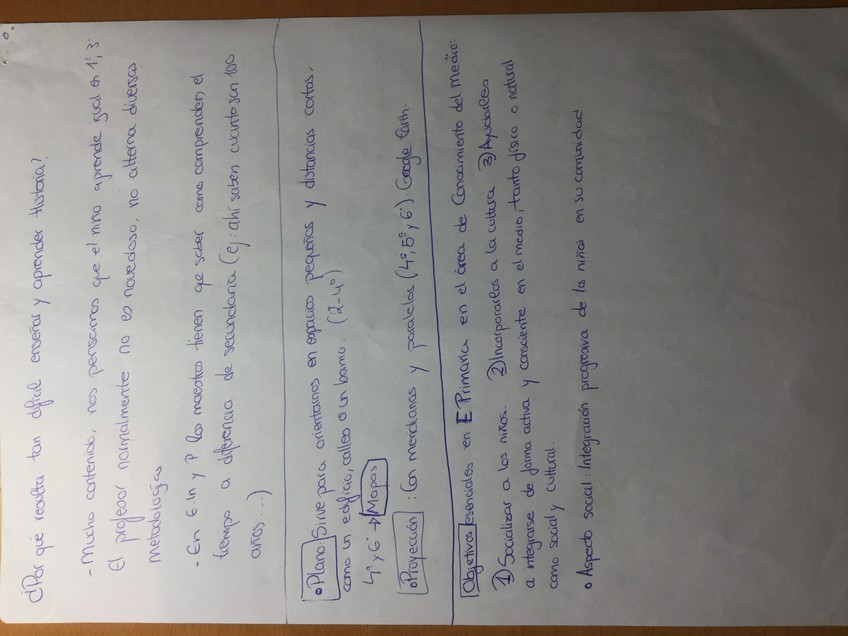 ¿Por qué resulta tan difícil enseñar y aprender Historia?
- Mucho contenido, nos pensamos que el niño aprende igual en 1º, 3º
El profesor normalmente no es novedoso, no alterna diversas
metodologías
- En E.In y P los maestros tienen que saber como comprenden el
tiempo a diferencia de secundaria (ej: ahí saben cuanto son 100
años...)
• Plano: Sirve para orientarnos en espacios pequeños y distancias cortas,
como un edificio, calles o un barrio. (2-4º)
4º y 6º → Mapas
• Proyección: Con meridianos y paralelos (4º, 5º y 6º) Google Earth.
Objetivos esenciales en E Primaria en el área de Conocimiento del medio:
1) Socializar a los niños. 2) Incorporarlos a la cultura 3) Ayudarles
a integrarse de forma activa y consciente en el medio, tanto físico o natural
como social y cultural.
• Aspecto social: Integración progresiva de los niños en su comunidad.